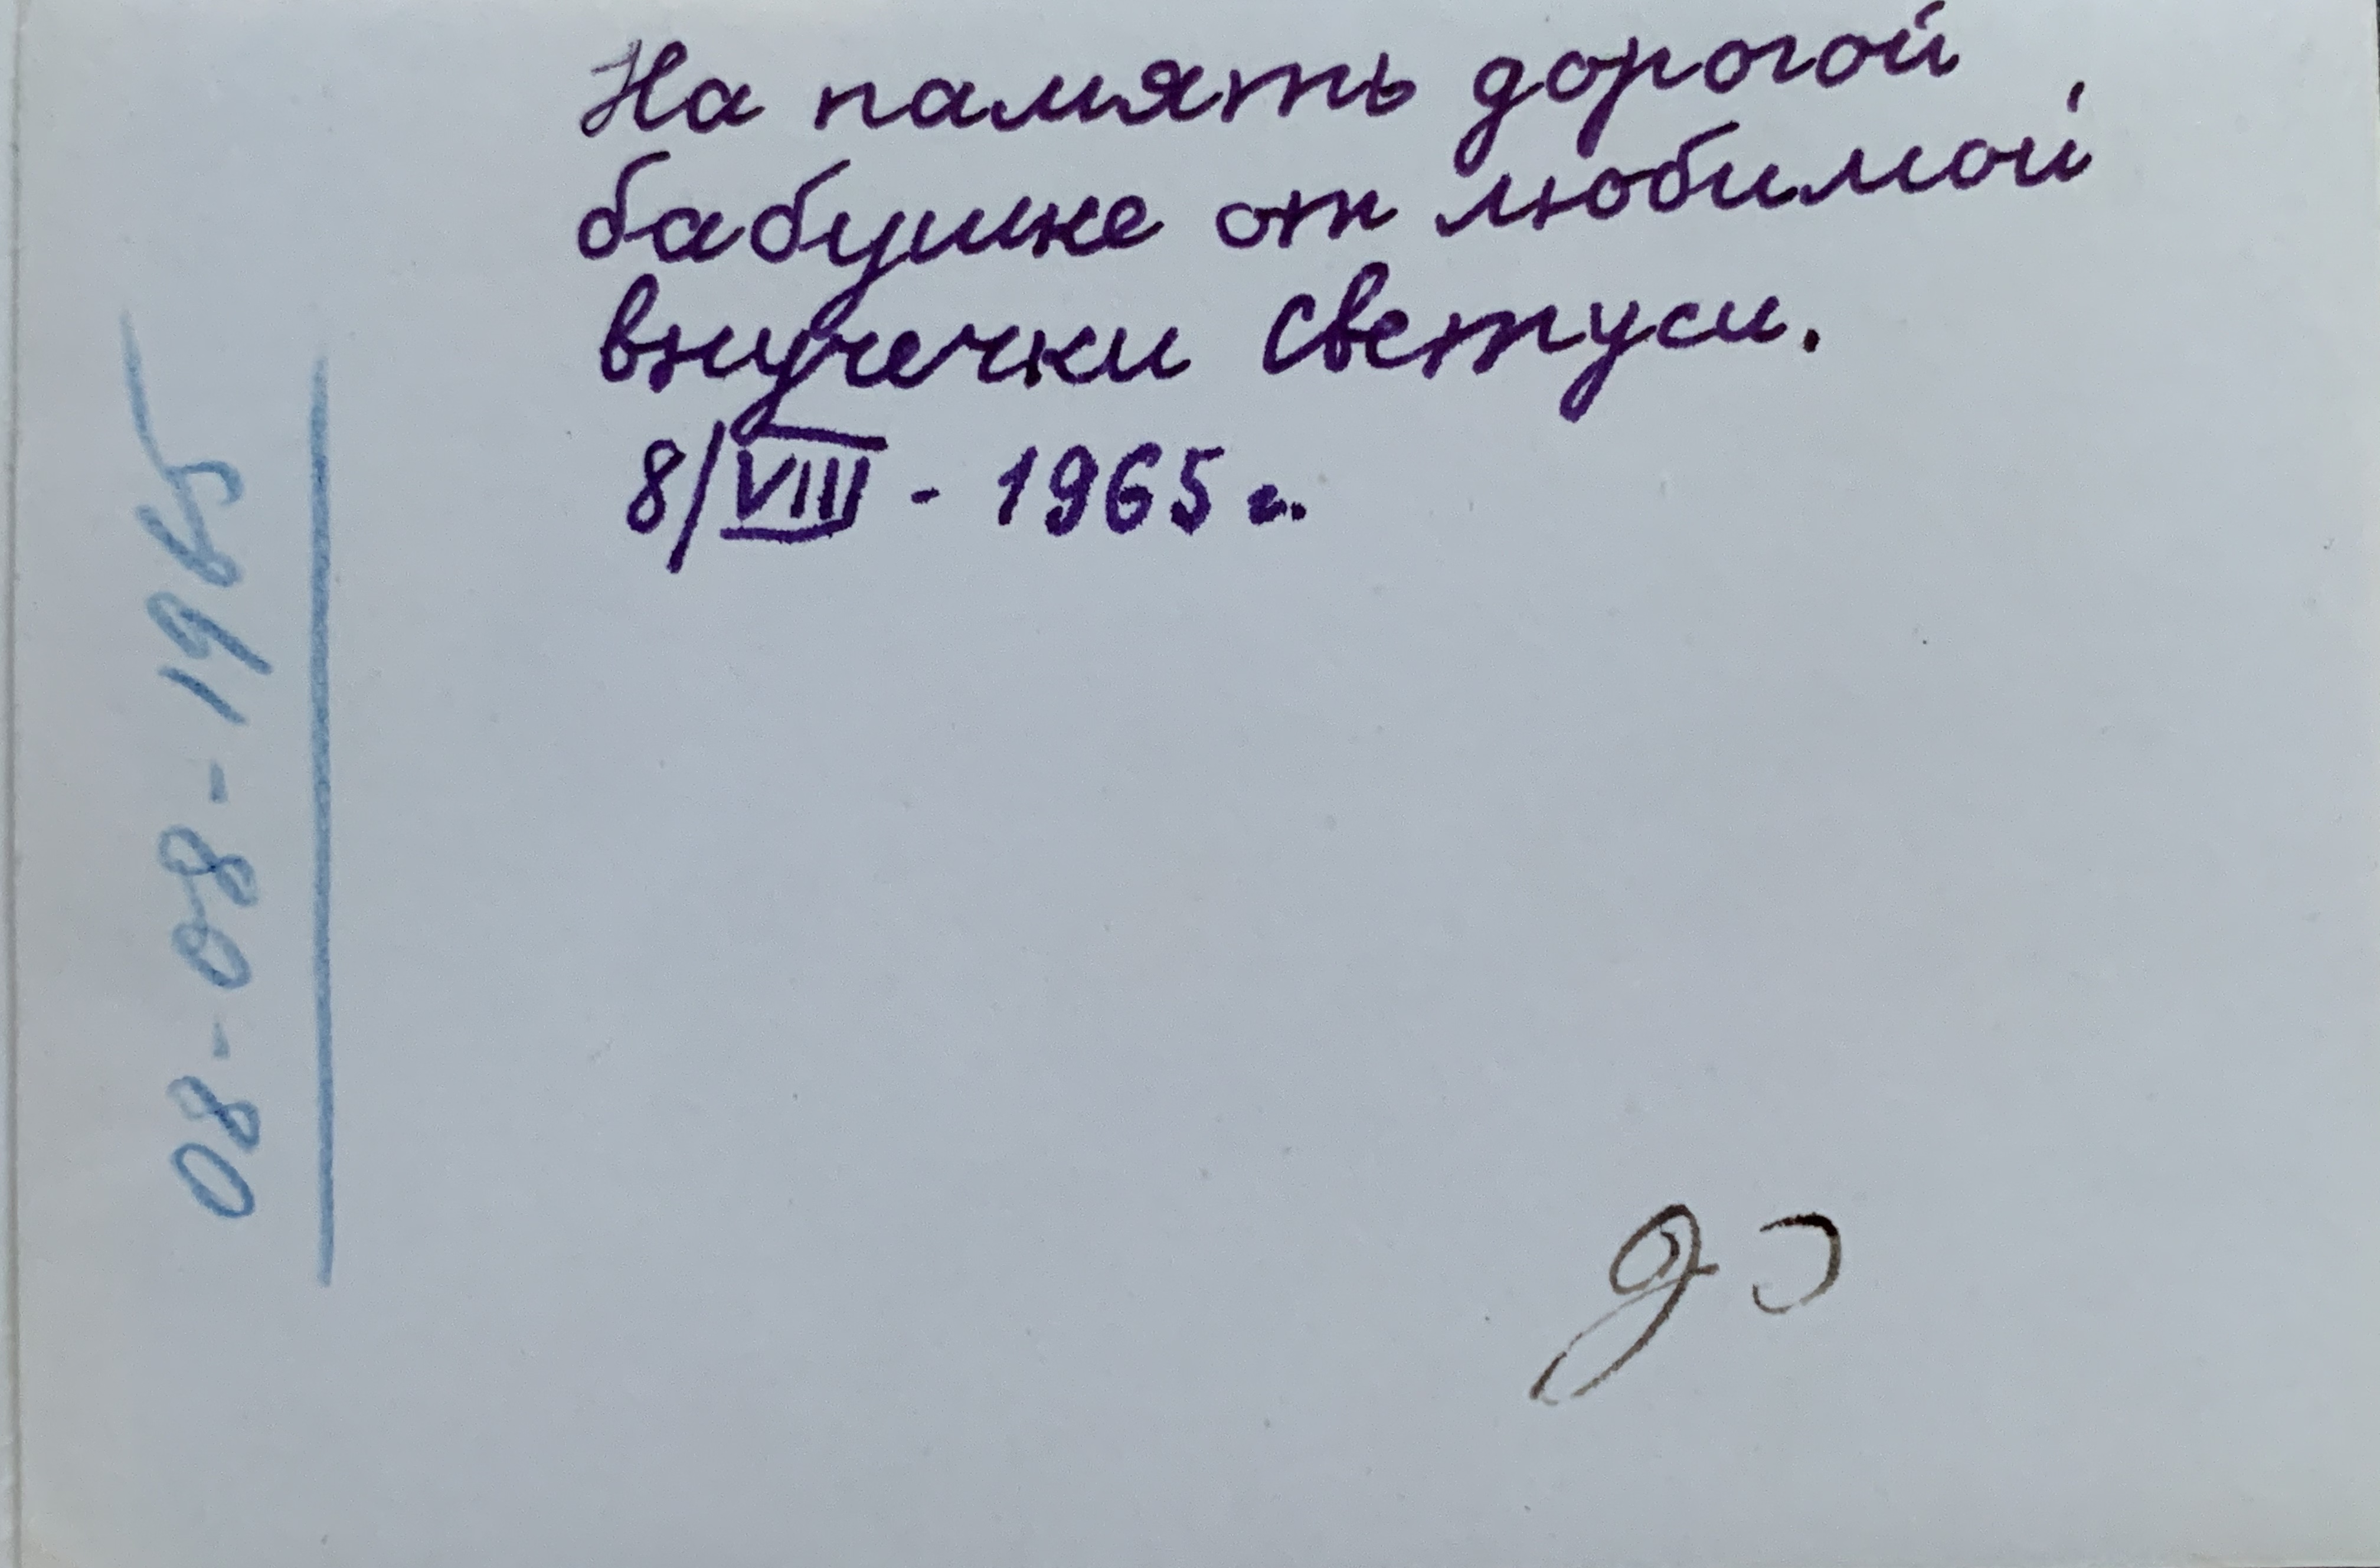 На память дорогой
бабушке от любимой
внучечки Светуси.
8/VIII - 1965 г.
08-08-1965